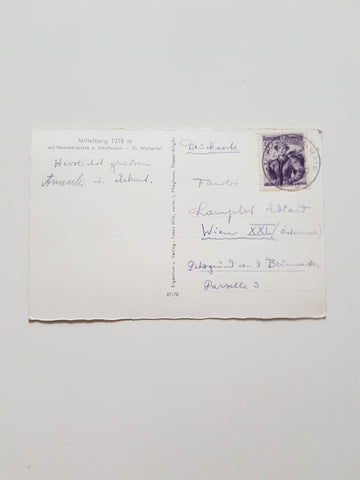 Mittelberg 1218 m
mit Hammerspitze u. Schafalpen — Kl. Walsertal
Herzlichst grüßen
Annerl u. Eduard.
Eigentum u. Verlag: Franz Milz, vorm. L. Pfleghaar, Füssen-Allgäu
87/78
Drucksache
Familie
Eduard
Wien XXI (Österreich)
Parzelle 3.